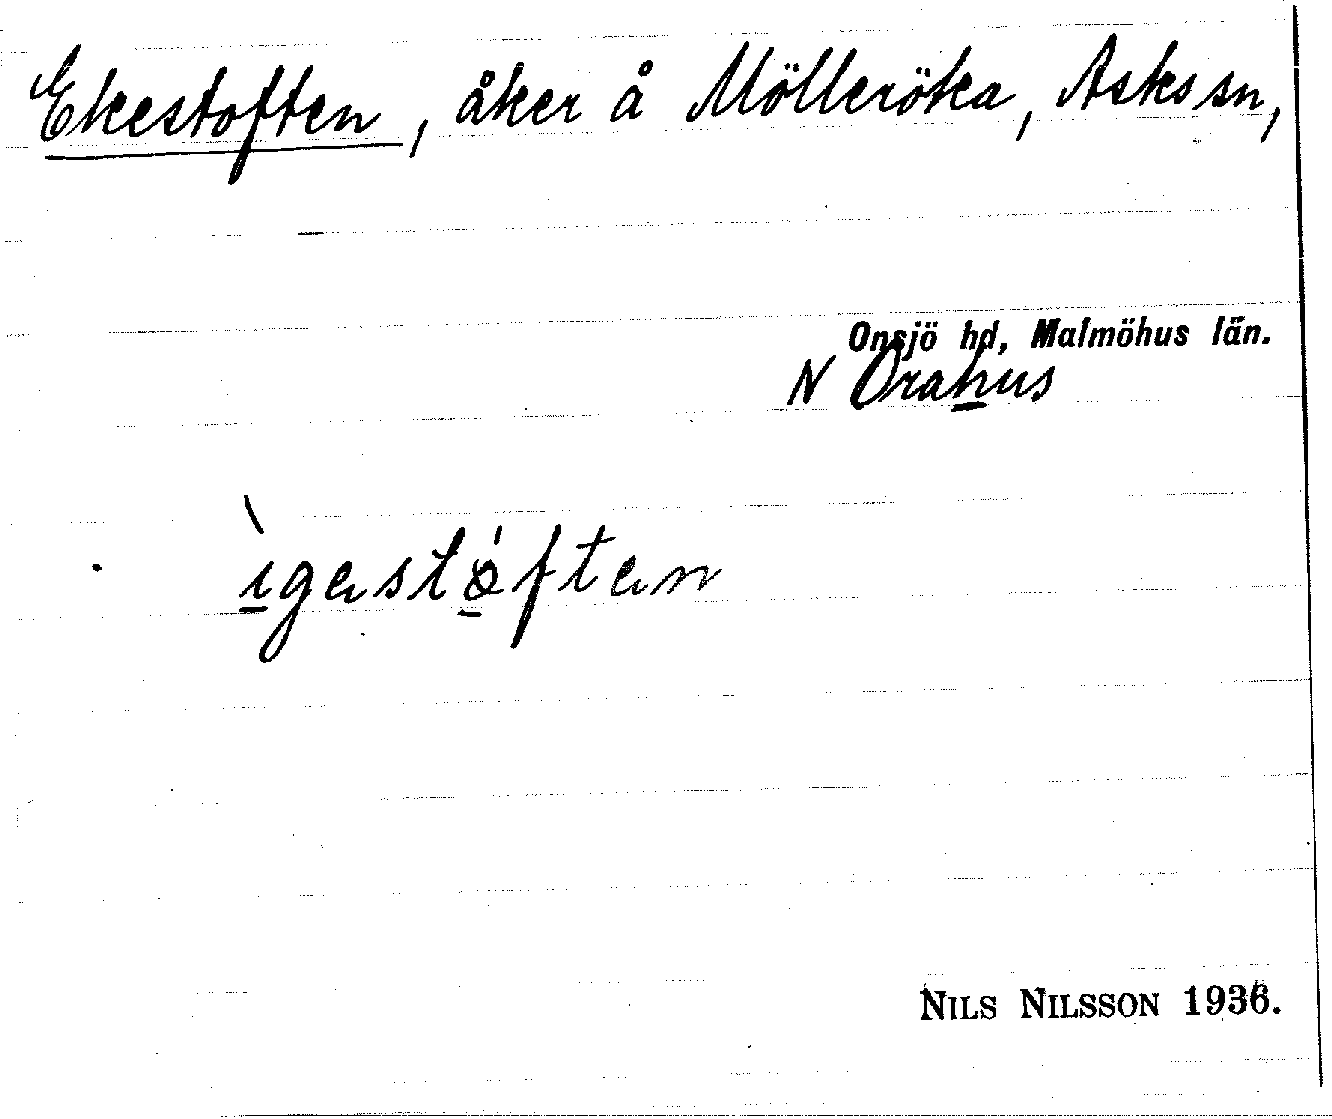 Ekestoften, åker å Mölleröka, Asks sn,
Onsjö hd, Malmöhus län.
N Orahus
ìgastóftan
NILS NILSSON 1936.